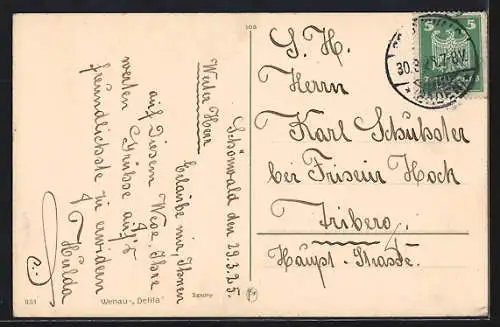 108
Schönwald den 29.3.25.
Werter Herr
Erlaube mir, Ihnen
auf Diesem Wege, Ihre
werten Grüsse auf's
freundlichste zu erwidern
Hulda
S. H.
Herrn
Karl Schuhster
bei Friseur Hock
Triberg
Haupt-Strasse
5 5
30.3.
7-8V.
931
Wenau-„Delila"